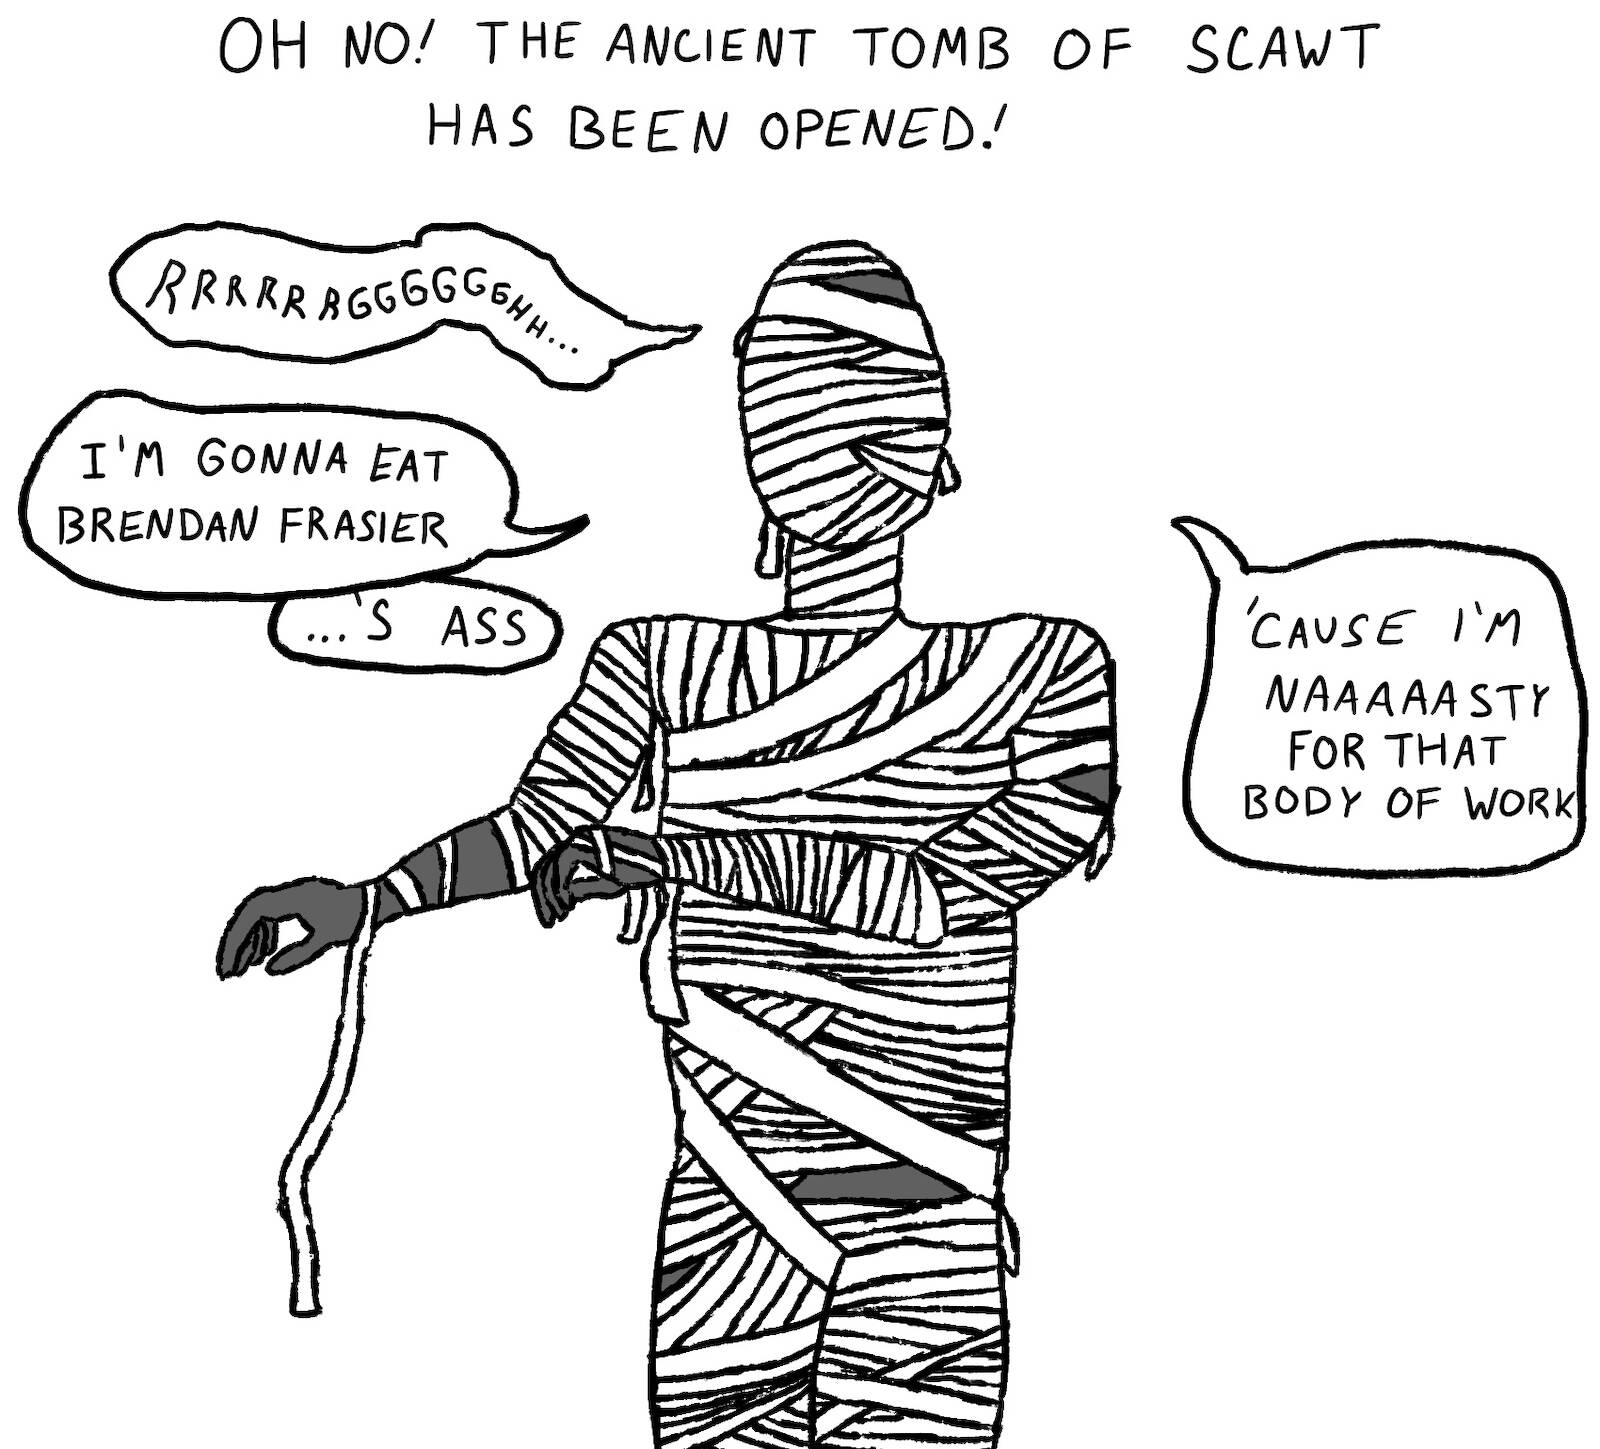 OH NO! THE ANCIENT TOMB OF SCAWT
HAS BEEN OPENED!
RRRRRRGGGGGGGHH...
I'M GONNA EAT
BRENDAN FRASIER
...'S ASS
'CAUSE I'M
NAAAAASTY
FOR THAT
BODY OF WORK